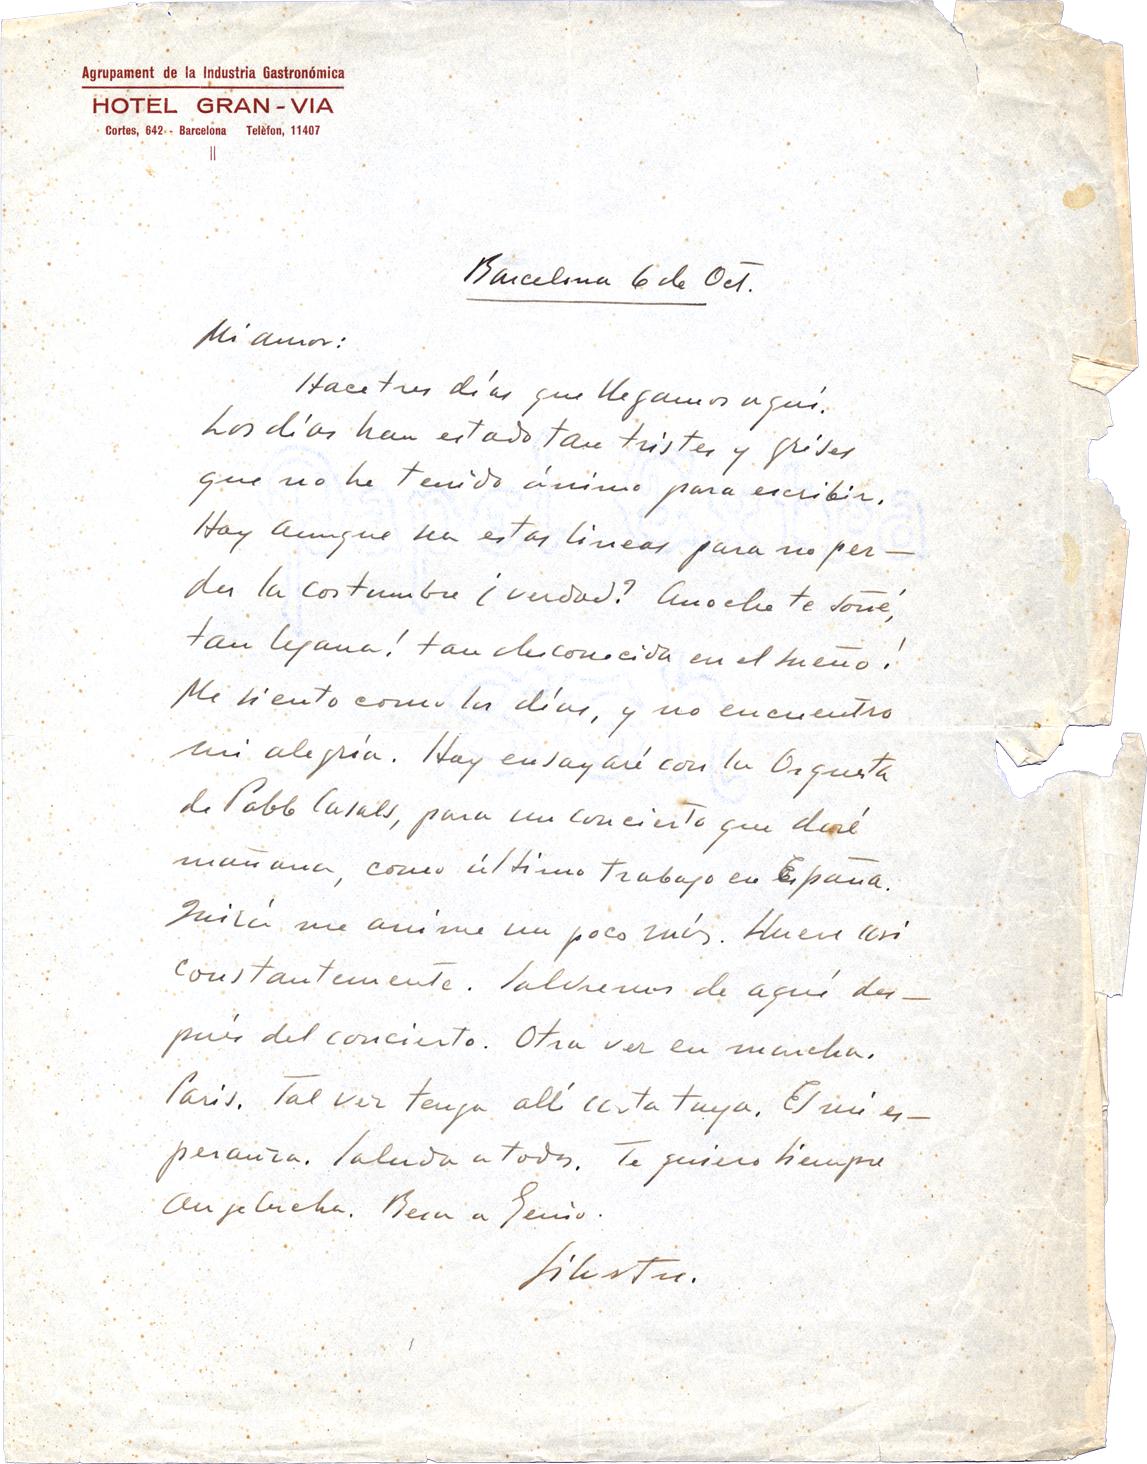 Agrupament de la Industria Gastronómica
HOTEL GRAN-VIA
Cortes, 642 - Barcelona Telèfon, 11407
Barcelona 6 de Oct.
Mi amor:
Hace tres días que llegamos aquí.
Los días han estado tan tristes y grises
que no he tenido ánimo para escribir.
Hoy aunque sea estas lineas para no per-
der la costumbre ¿verdad? Anoche te soñé,
tan lejana! tan desconocida en el sueño!
Me siento como los días, y no encuentro
mi alegría. Hoy ensayaré con la Orquesta
de Pablo Casals, para un concierto que daré
mañana, como último trabajo en España.
Quizá me anime un poco más. Llueve casi
constantemente. Saldremos de aquí des-
pués del concierto. Otra vez en marcha.
Paris. Tal vez tenga allí carta tuya. Es mi es-
peranza. Saluda a todos. Te quiero siempre
Angelucha. Besa a Genio.
Silvestre.